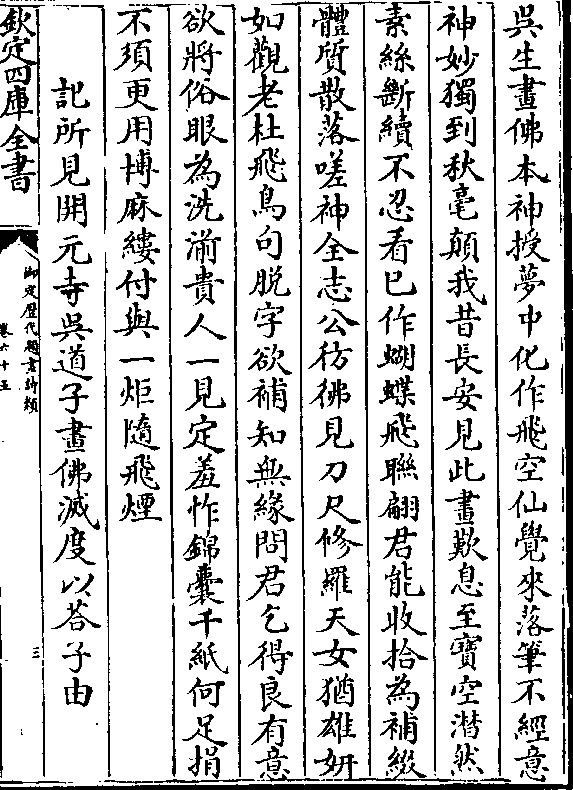 吳生畫佛本神授夢中化作飛空仙覺來落筆不經意
神妙獨到秋毫顛我昔長安見此畫歎息至寶空潸然
素絲斷續不忍看已作蝴蝶飛聯翩君能收拾為補綴
體質散落嗟神全志公彷彿見刀尺修羅天女猶雄妍
如觀老杜飛鳥句脫字欲補知無緣問君乞得良有意
欲將俗眼為洗湔貴人一見定羞怍錦囊千紙何足捐
不須更用博麻縷付與一炬隨飛煙
記所見開元寺吳道子畫佛滅度以答子由
欽定四庫全書
御定歷代題畫詩類
卷六十五
三